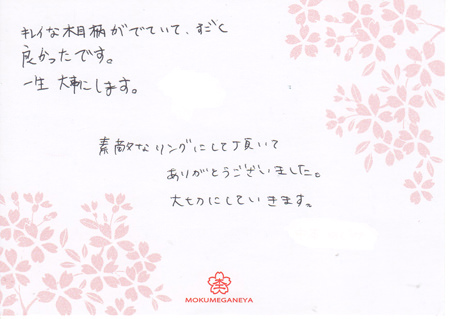 キレイな木目柄がでていて、すごく
良かったです。
一生 大事にします。
素敵なリングにして頂いて
ありがとうございました。
大切にしていきます。
MOKUMEGANEYA